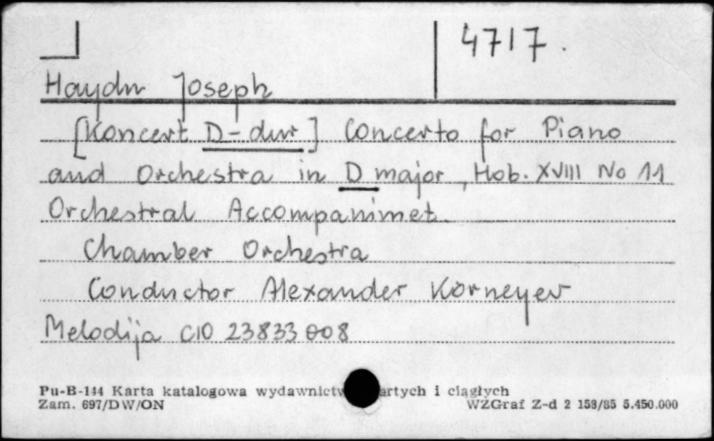 4717.
Haydn Joseph
[Koncert D-dur] Concerto for Piano
and Orchestra in D major, Hob. XVIII No 11
Orchestral Accompanimet
Chamber Orchestra
Conductor Alexander Korneyev
Melodija C10 23833 008
Pu-B-144 Karta katalogowa wydawnictw artych i ciągłych
Zam. 697/DW/ON WZGraf Z-d 2 153/85 5.450.000